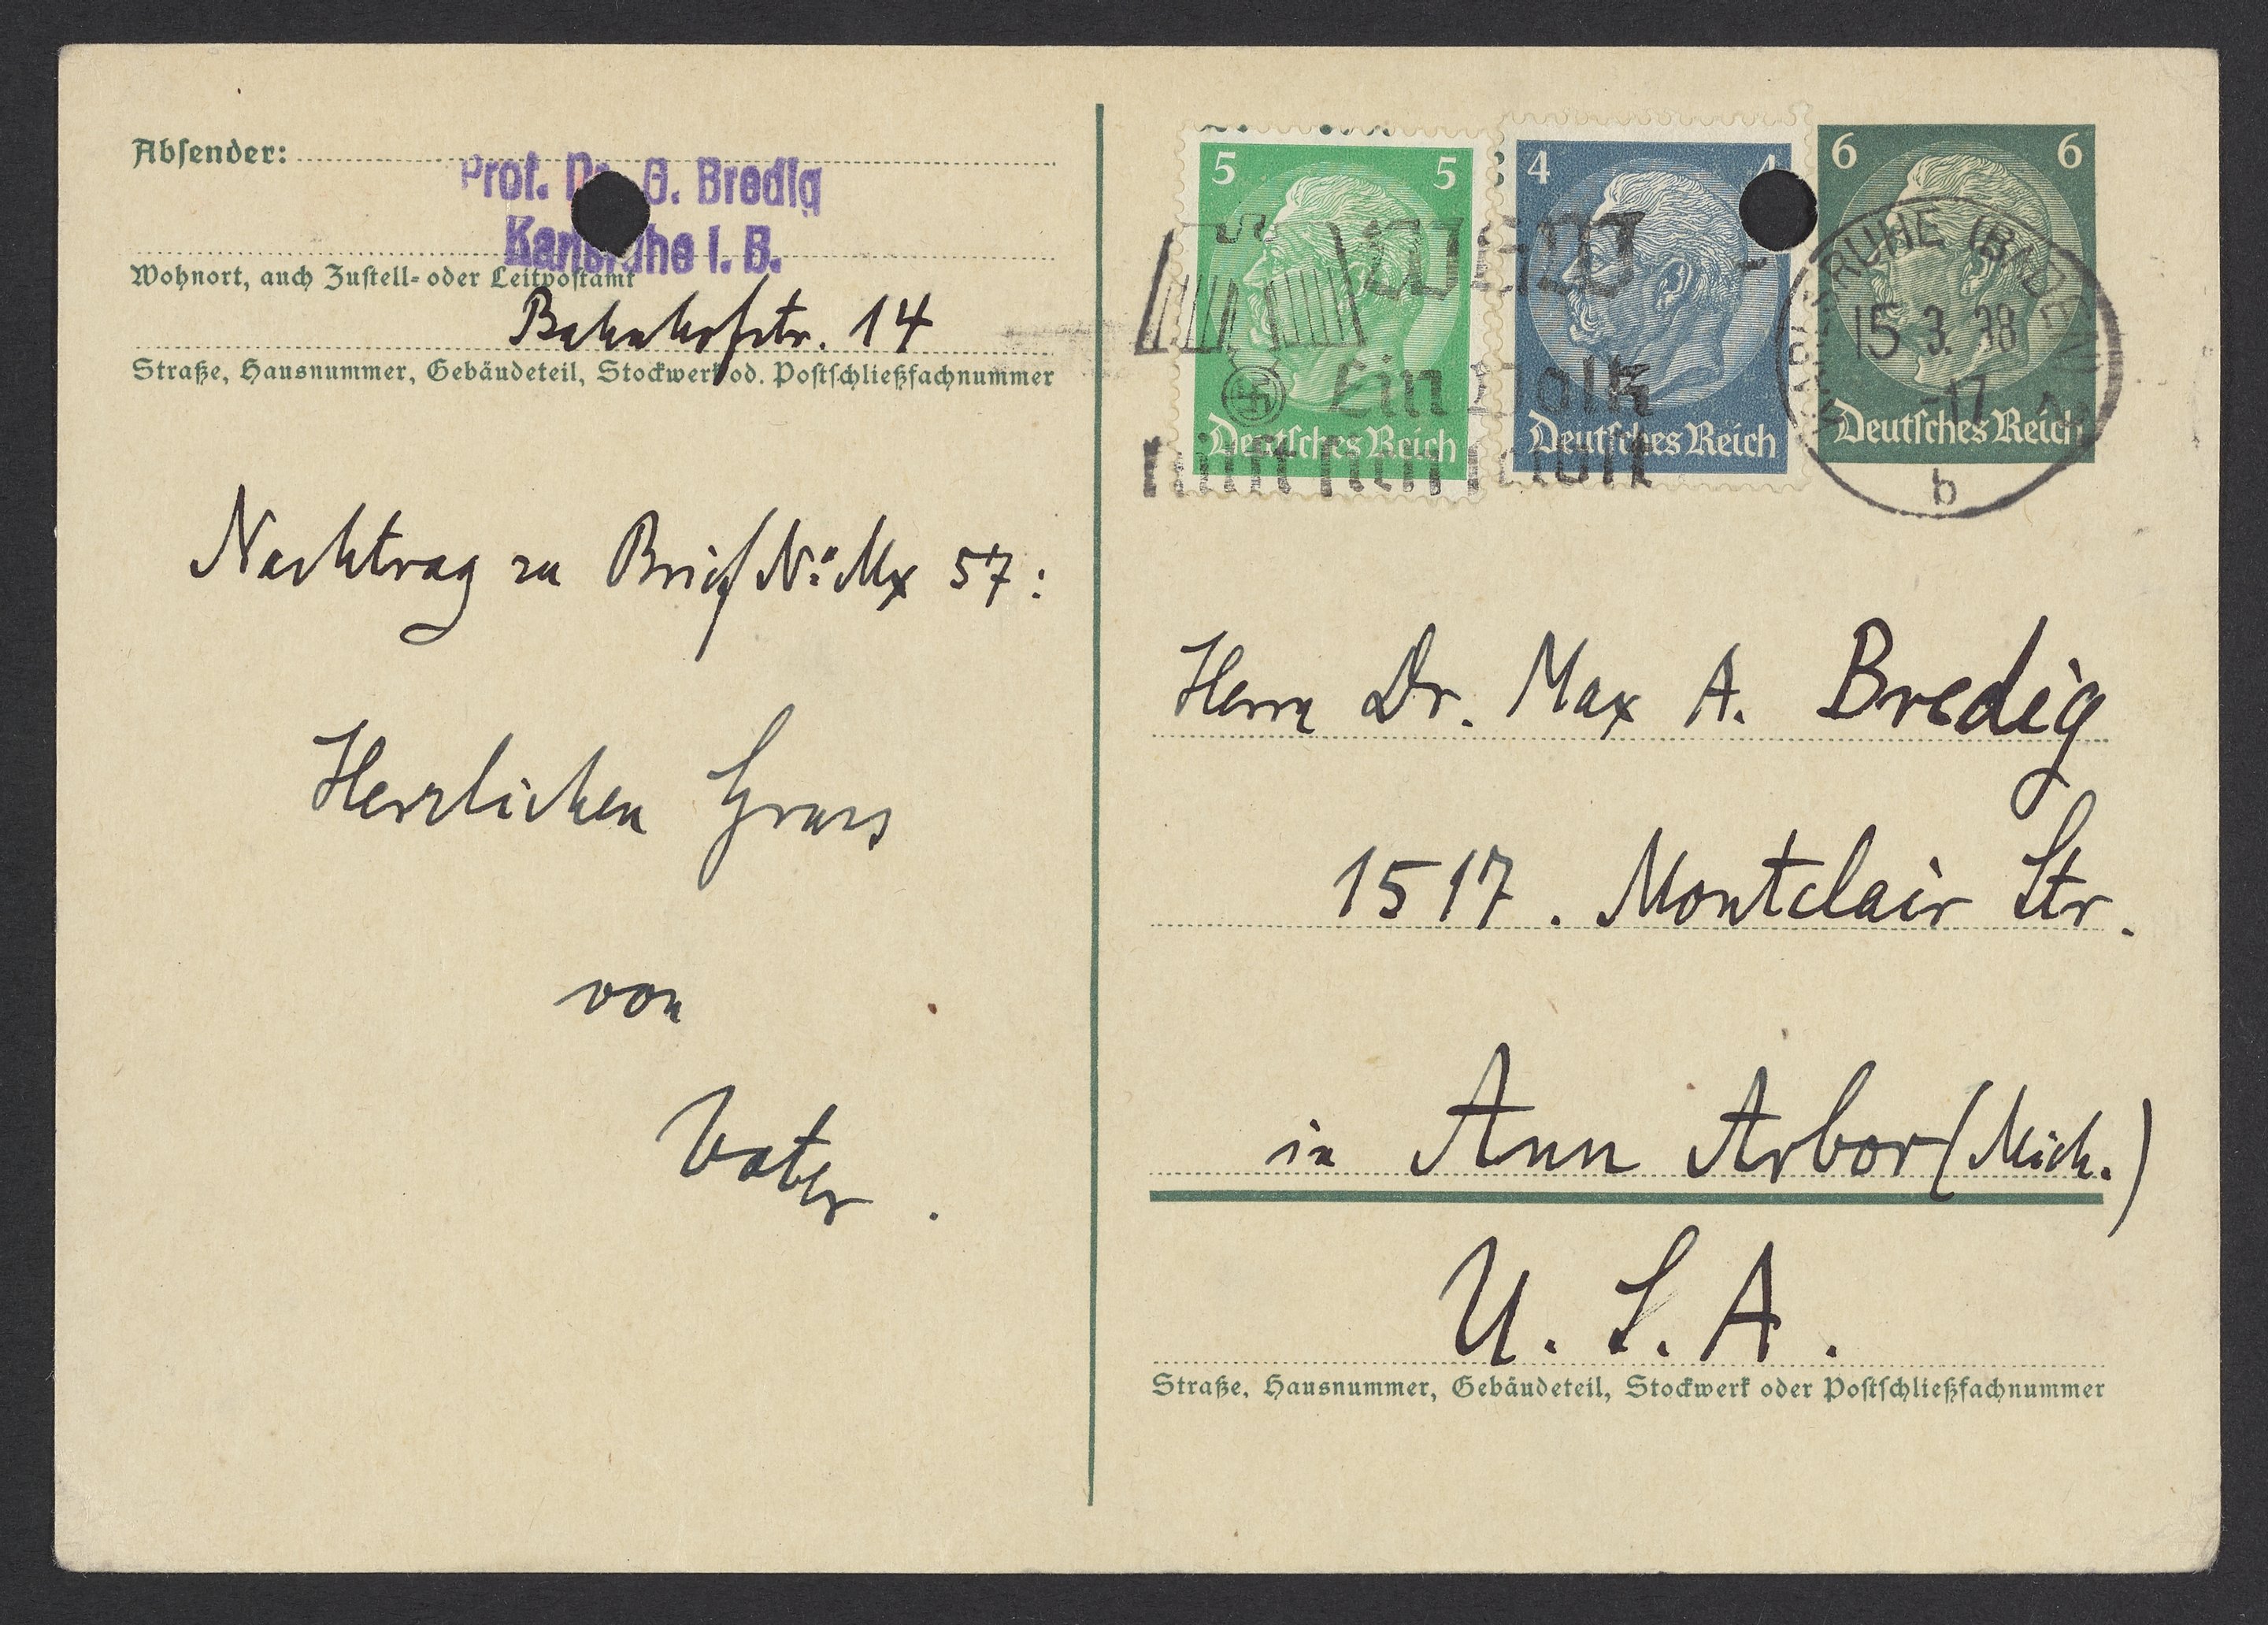 Absender:
Prof. Dr. G. Bredig
Karlsruhe i. B.
Wohnort, auch Zustell- oder Leitpostamt
Bahnhofstr. 14
Straße, Hausnummer, Gebäudeteil, Stockwerk od. Postschließfachnummer
Nachtrag zu Brief No Mx 57:
Herzlichen Gruss
von
Vater.
5 5
Deutsches Reich
4 4
Deutsches Reich
6 6
Deutsches Reich
WHW
Ein Volk
hilft sich selbst
KARLSRUHE (BADEN) 2
15.3.38
-17
b
Herrn Dr. Max A. Bredig
1517. Montclair Str.
in Ann Arbor (Mich.)
U. S. A.
Straße, Hausnummer, Gebäudeteil, Stockwerk oder Postschließfachnummer